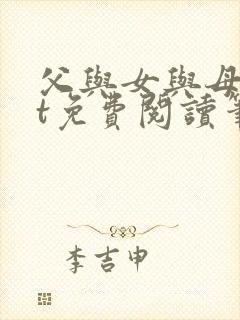 父與女與母
t免費閱讀
李吉申